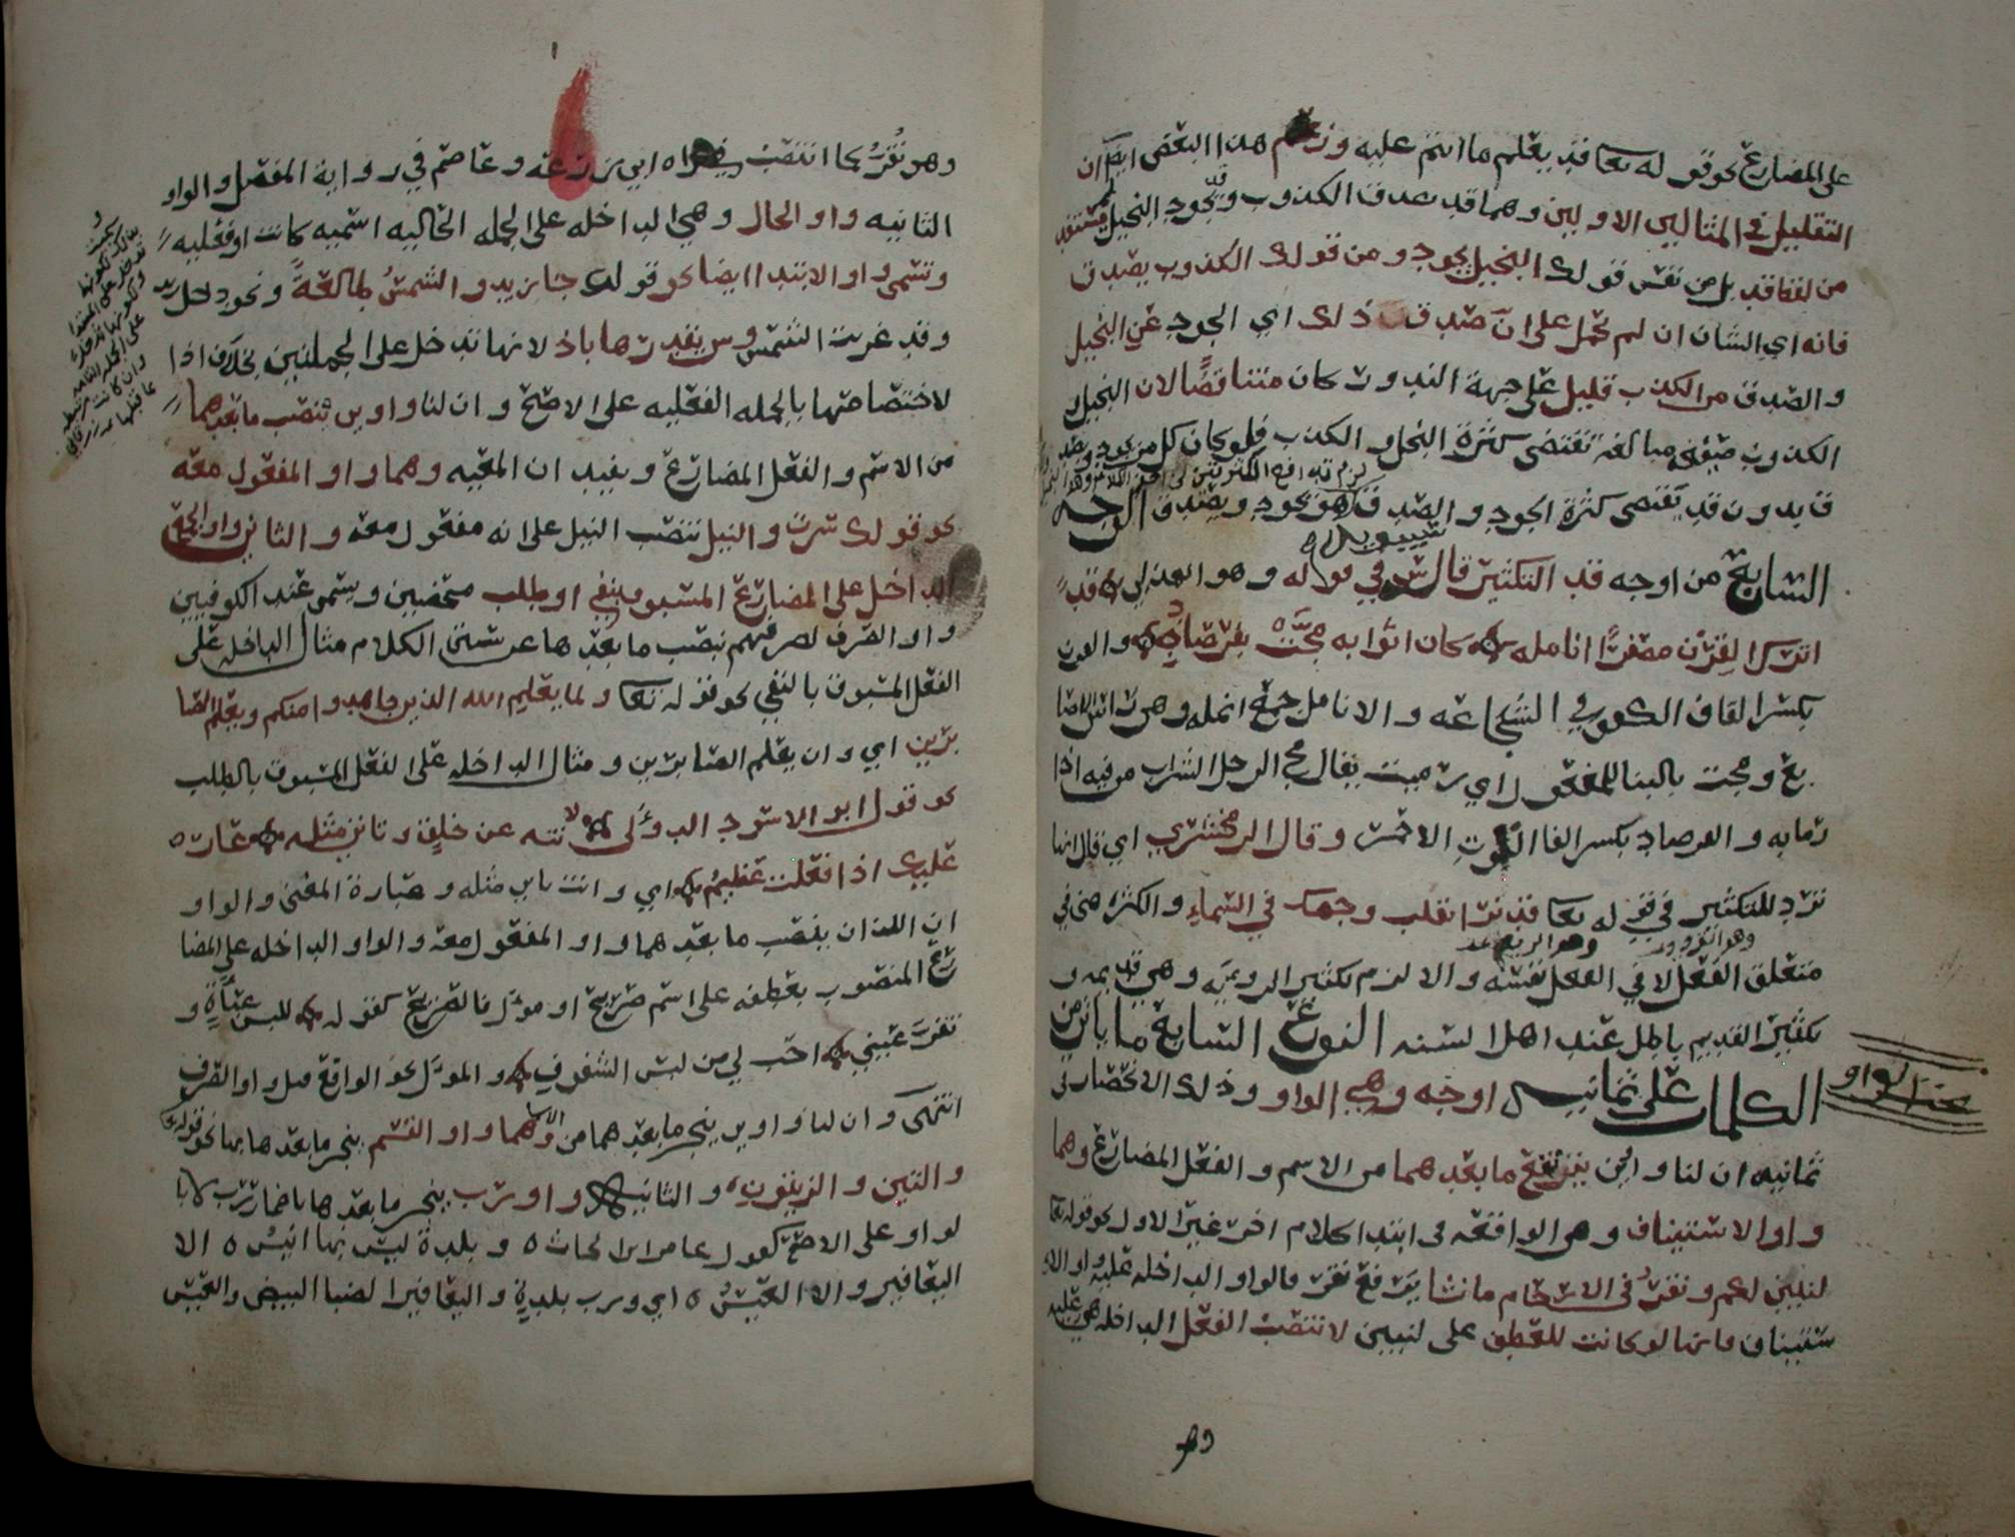 على المضارع نحو قوله تعا قد يعلم ما انتم عليه وزعم هذا البعض ايضا ان
التقليل في المثالين الاولين وهما قد يصدق الكذوب وقد يجود البخيل لم يستفد
من لفظ قد بل من نفس قولك البخيل يجود ومن قولك الكذوب يصدق
فانه اي الشان ان لم تحمل على ان صدق ذلك اي الجود عن البخيل
والصدق من الكذب قليل على جهة الندور كان متناقضا لان البخيل و
الكذوب صيغة مبالغه تقتضي كثرة البخل والكذب فلو كان كل من يجود ويصد
ق بدون قد يقتضي كثرة الجود والصدق وهو يجود ويصدق الوجه
السابع من اوجه قد التكثير قال س في قوله وهو الهذلي قد
اترك القرن مصفرا انامله كان اثوابه مجت بفرصاد والقرن
بكسر القاف الكفو في الشجاعه والانامل جمع انمله وهي راس الاصا
بع ومجت بالبنا للمفعول اي رميت يقال مج الرجل الشراب من فيه اذا
رما به والفرصاد بكسر الفا التوت الاحمر وقال الزمخشري اي قال انها
ترد للتكثير في قوله تعا قد نرا تقلب وجهك في السماء والكثره هي في
متعلق الفعل لا في الفعل نفسه والا لزم تكثير الرويه وهي قديمه و
تكثير القديم باطل عند اهل السنه النوع السابع ما ياتي من
الكلمات على ثمانيه اوجه وهي الواو وذلك الانحصار في
مبحث الواو
ثمانيه ان لنا واوين يرتفع ما بعدهما من الاسم والفعل المضارع وهما
واو الاستيناف وهي الواقعه في ابتدا كلام اخر غير الاول نحو قوله تعا
لنبين لكم ونقر في الارحام ما نشا برفع نقر فالواو الداخله عليه واو الا
ستيناف فانها لو كانت للعطف على لنبين لانتصب الفعل الداخله هي عليه
وهو
وهو نقر كما انتصب في قراة ابي زرعه وعاصم في رواية المفضل والواو
الثانيه واو الحال وهي الداخله على الجمله الحاليه اسميه كانت او فعليه
وتسمى واو الابتدا ايضا نحو قولك جا زيد والشمس طالعة ونحو دخل زيد
وقد غربت الشمس وس يقدرها باذ لانها تدخل على الجملتين بخلاف اذا
لاختصاصها بالجمله الفعليه على الاصح وان لنا واوين ينتصب ما بعدهما
من الاسم والفعل المضارع ويفيدان المعيه وهما واو المفعول معه
نحو قولك سرت والنيل تنصب النيل على انه مفعول معه والثاني واو الجمع
الداخل على المضارع المسبوق بنفي او طلب محضين ويسمى عند الكوفيين
واو الصرف لصرفهم بنصب ما بعدها عن سنن الكلام مثال الداخله على
الفعل المسبوق بالنفي نحو قوله تعا ولما يعلم الله الذين جاهدوا منكم ويعلم الصا
برين اي وان يعلم الصابرين ومثال الداخله على الفعل المسبوق بالطلب
نحو قول ابو الاسود الدولى لا تنه عن خلق وتاتي مثله عار
عليك اذا فعلت عظيم اي وانت تاتي مثله وعبارة المغني والواو
ان اللذان ينصب ما بعدهما واو المفعول معه والواو الداخله على المضا
رع المنصوب بعطفه على اسم صريح او موول فالصريح كقوله للبس عباة و
تقر عيني احب الي من لبس الشفوف والموول نحو الواقع قبل واو الصرف
انتهى وان لنا واوين ينجر ما بعدهما من الاسما وهما واو القسم ينجر ما بعدها بها نحو قولك
والتين والزيتون والثانيه واو رب ينجر ما بعدها باضمار رب لا با
لواو على الاصح كقول عامر ابن الحارث وبلدة ليس بها انيس الا
اليعافير والا العيس اي ورب بلدة واليعافير الضبا البيض والعيس